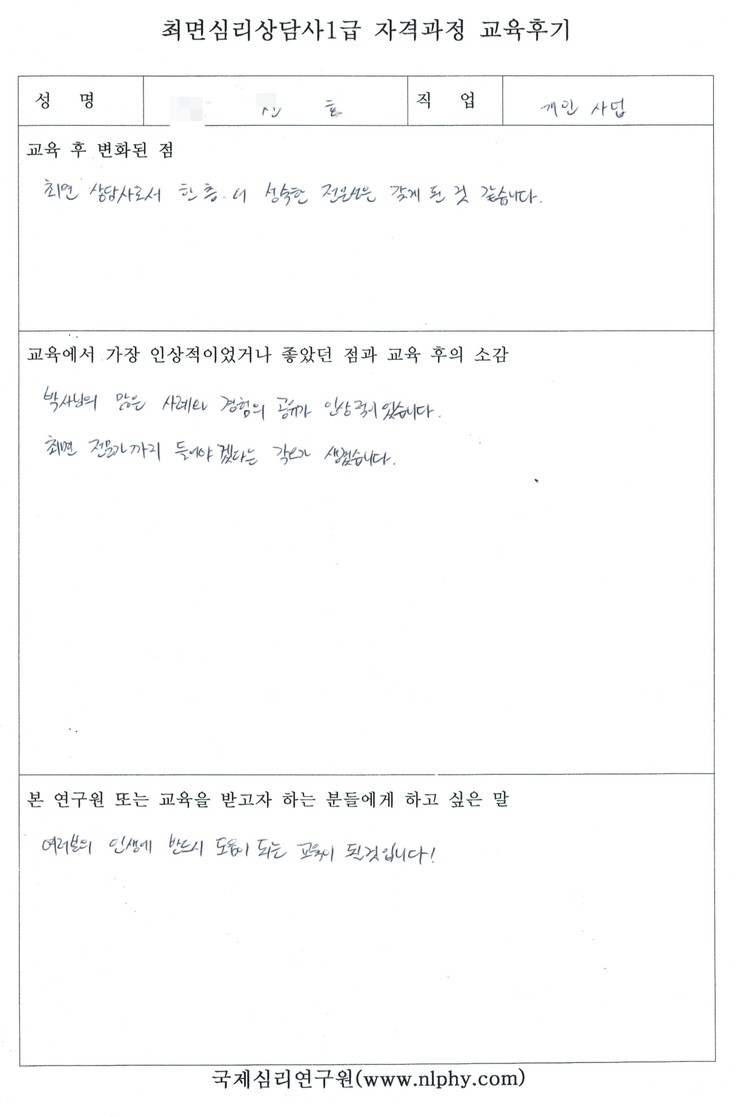 최면심리상담사1급 자격과정 교육후기
성 명 호 직 업 개인 사업
교육 후 변화된 점
최면 상담사로서 한 층 더 성숙한 전문성을 갖게 된 것 같습니다.
교육에서 가장 인상적이었거나 좋았던 점과 교육 후의 소감
박사님의 많은 사례와 경험의 공유가 인상적이었습니다.
최면 전문가까지 들어야겠다는 각오가 생겼습니다.
본 연구원 또는 교육을 받고자 하는 분들에게 하고 싶은 말
여러분의 인생에 반드시 도움이 되는 교육이 될것입니다!
국제심리연구원(www.nlphy.com)